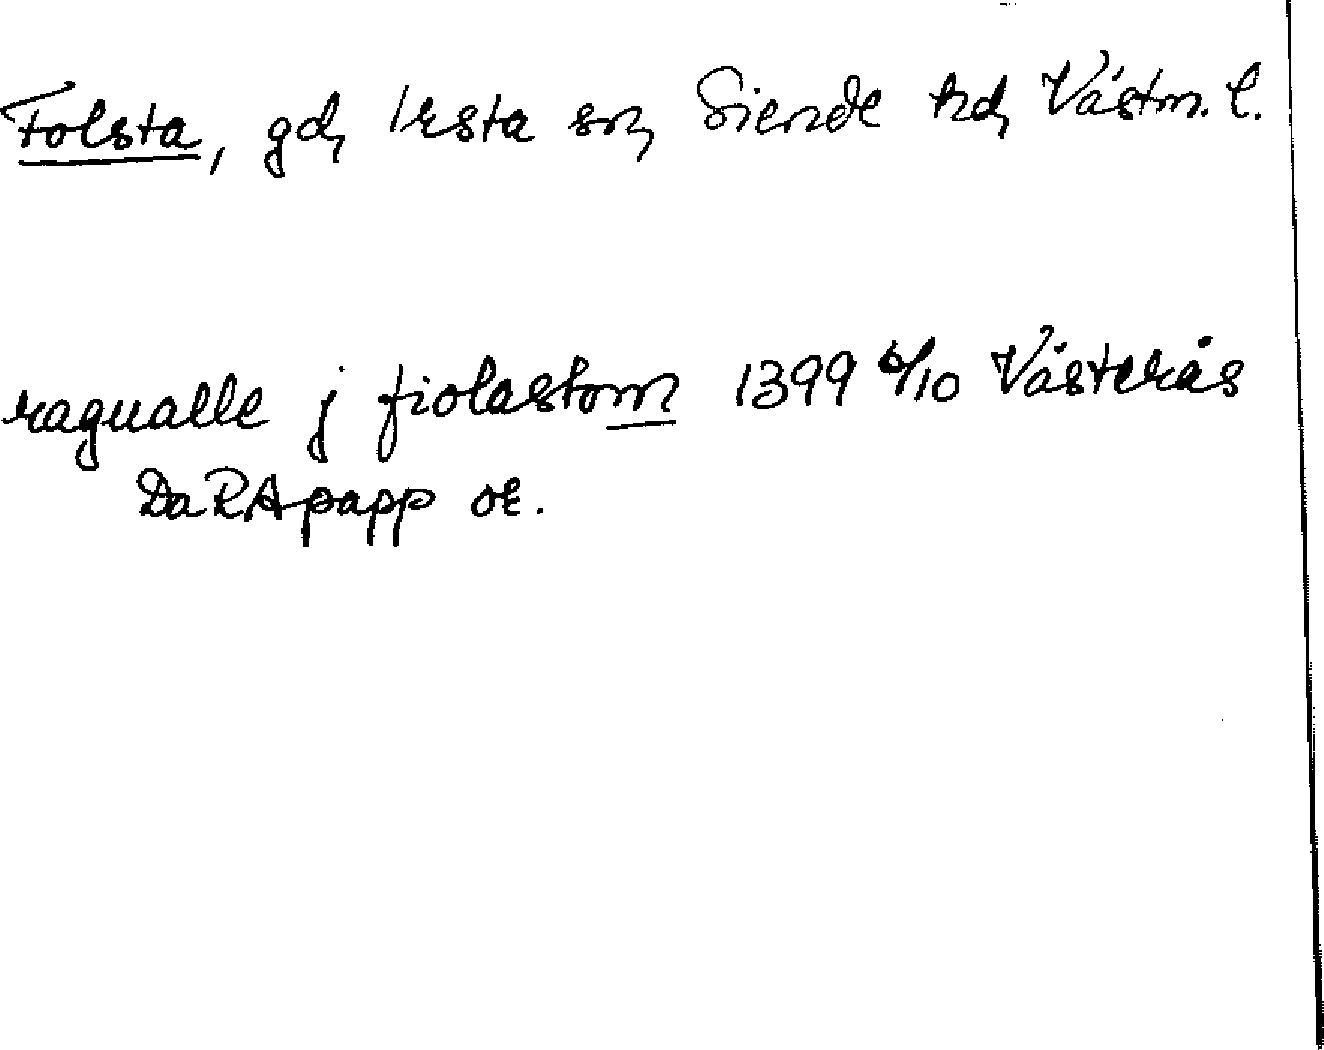 Folsta, gd, Irsta sn, Siende hd, Västm. l.
ragualle j fiolastom 1399 6/10 Västerås
Da RApapp or.